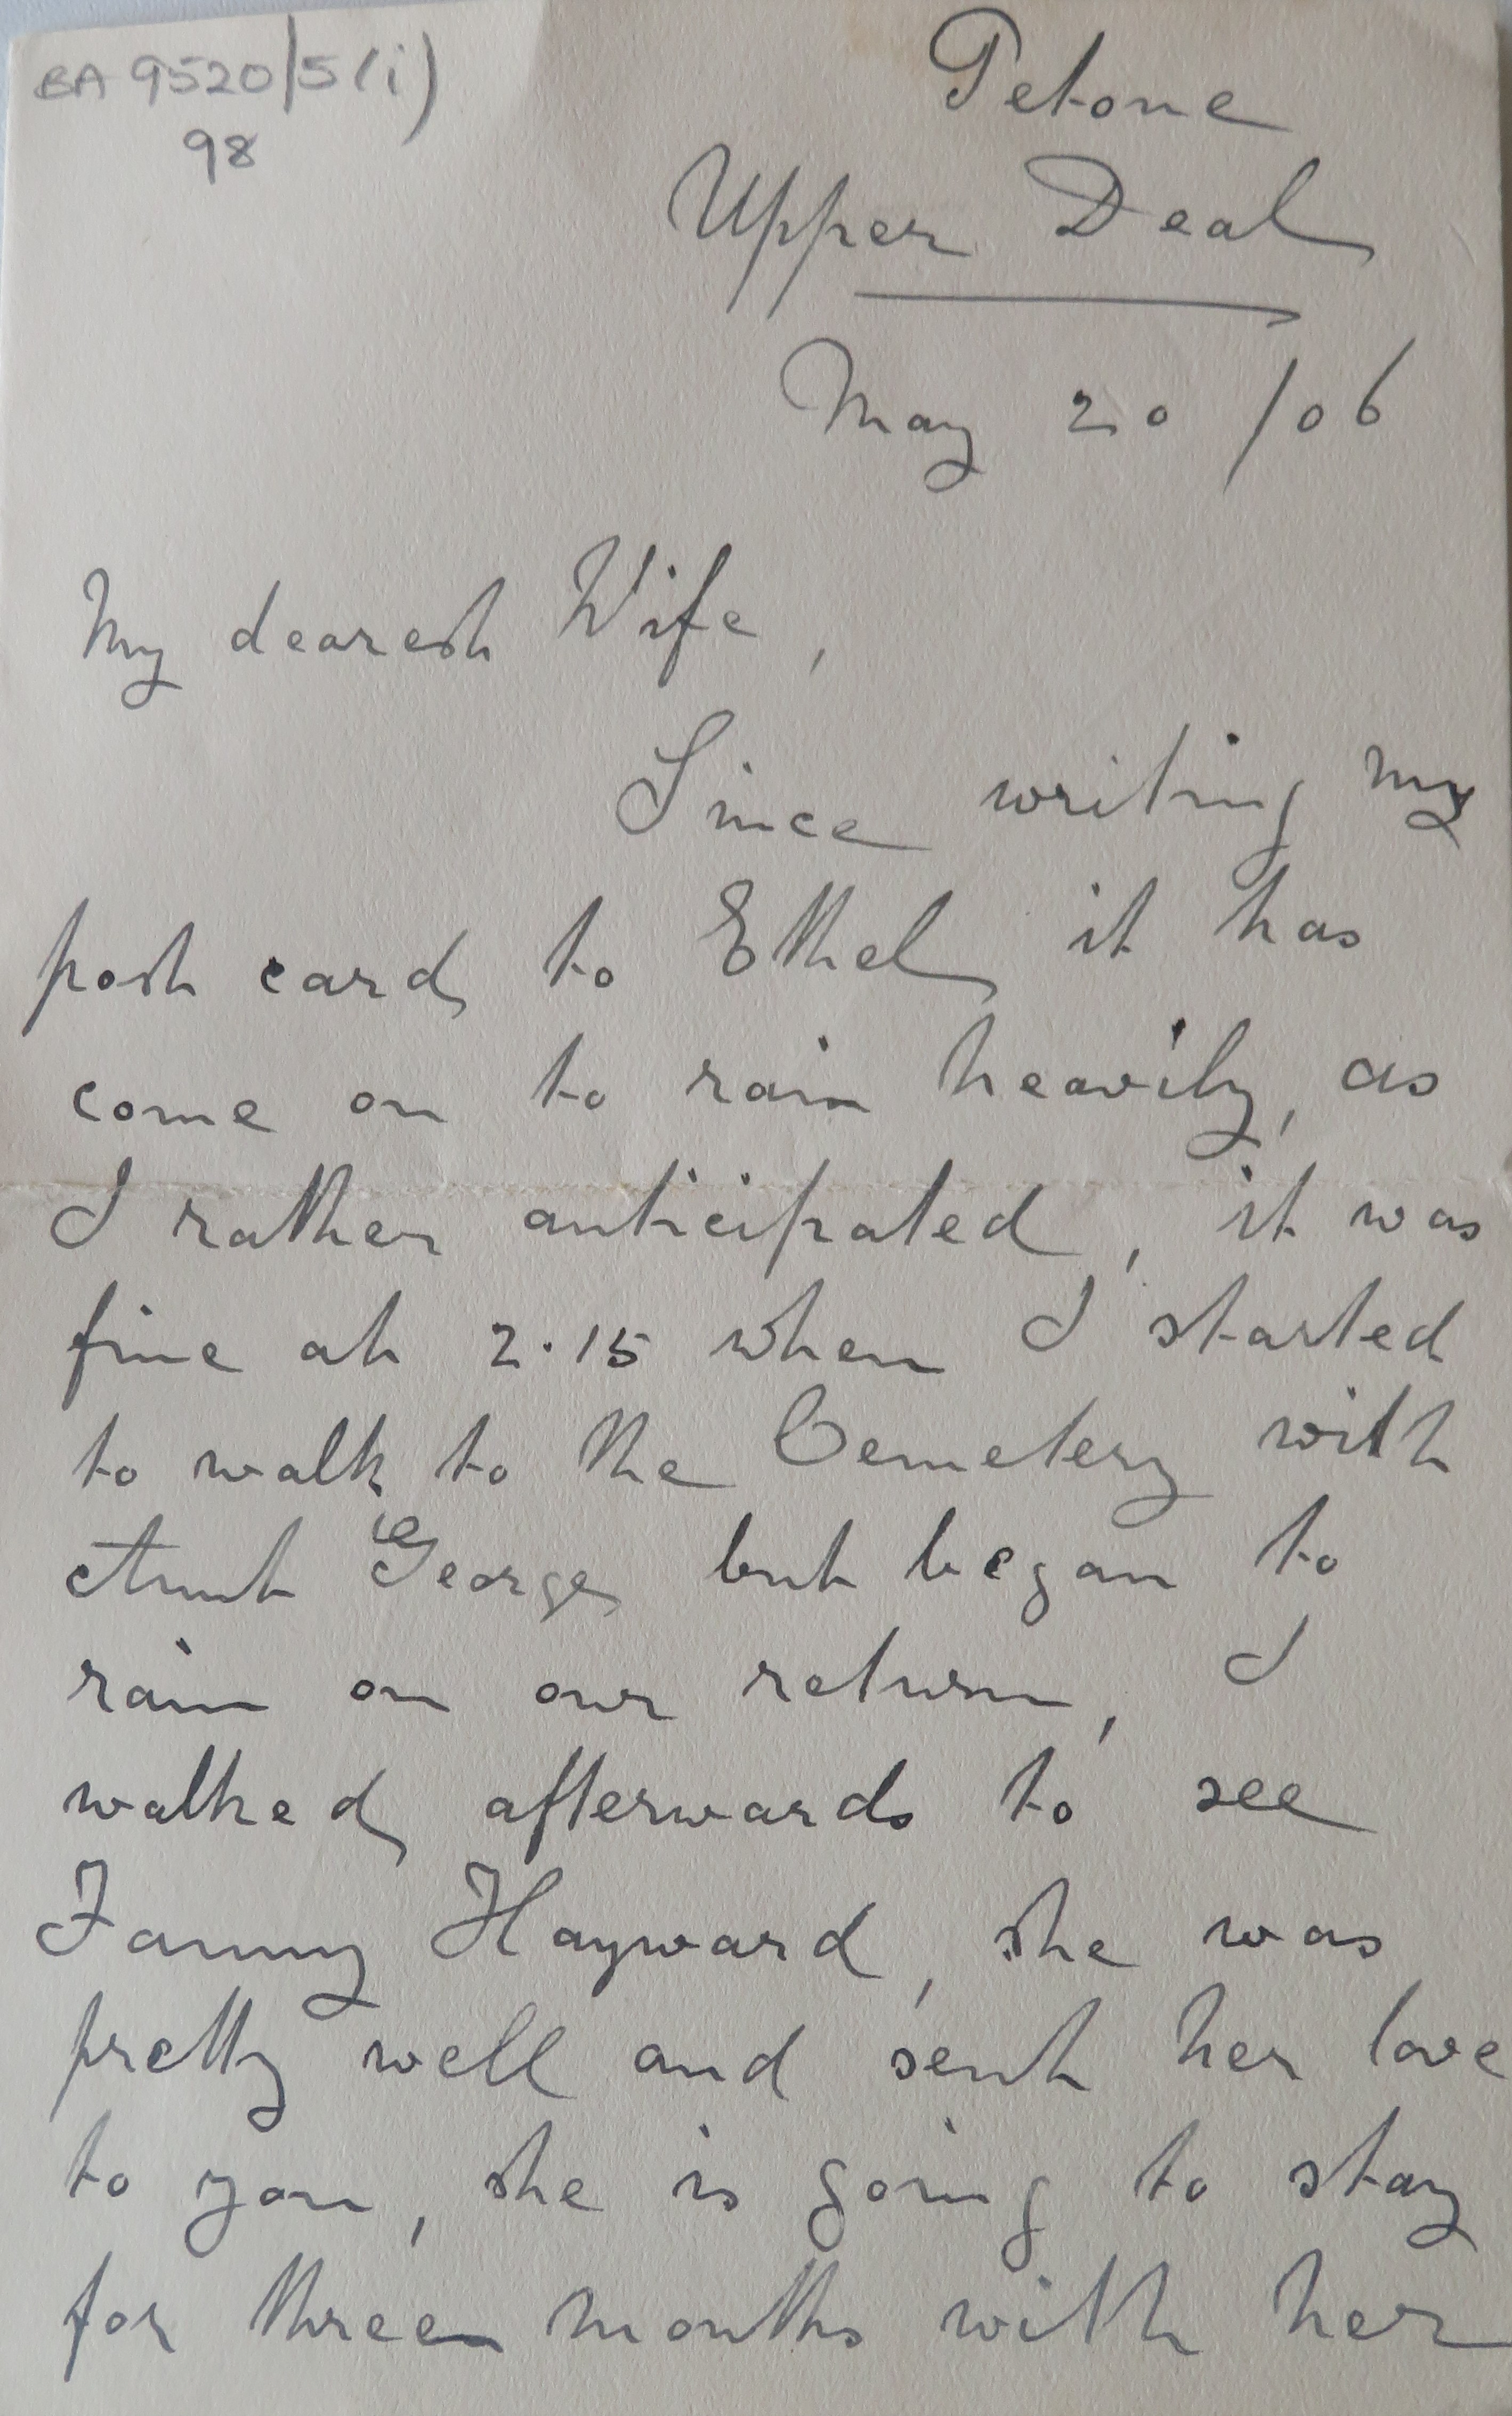 BA 9520/5(i)
98
Petone
Upper Deal
May 20/06
My dearest Wife,
Since writing my
post card to Ethel it has
come on to rain heavily, as
I rather anticipated, it was
fine at 2.15 when I started
to walk to the Cemetery with
Aunt George but began to
rain on our return, I
walked afterwards to see
Fanny Hayward, she was
pretty well and sent her love
to you, she is going to stay
for three months with her